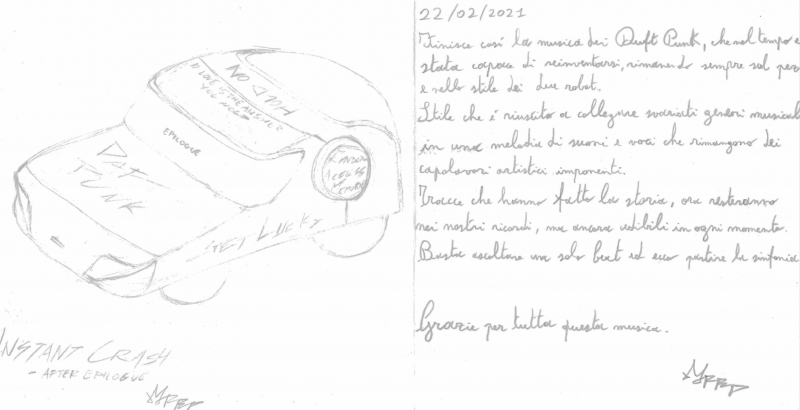 HOLD ON
IF LOVE IS THE ANSWER
EPILOGUE
DAFT
PUNK
RANDOM
ACCESS
GET LUCKY
INSTANT CRASH
- AFTER EPILOGUE
22/02/2021
Finisce così la musica dei Daft Punk, che nel tempo è
stata capace di reinventarsi, rimanendo sempre sul pez
e nello stile dei due robot.
Stile che è riuscito a collegare svariati generi musical
in una melodia di suoni e voci che rimangono dei
capolavori artistici imponenti.
Tracce che hanno fatto la storia, ora resteranno
nei nostri ricordi, ma ancora udibili in ogni momento.
Basta ascoltare un solo beat ed ecco partire la sinfonia
Grazie per tutta questa musica.